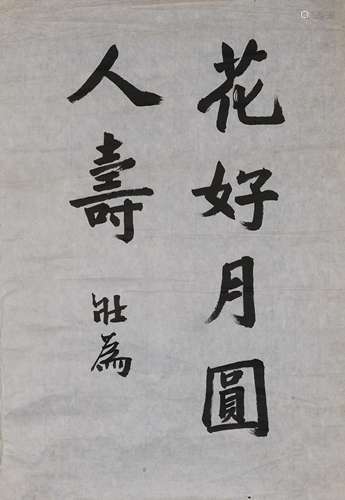 花好月圓
人壽
壯為